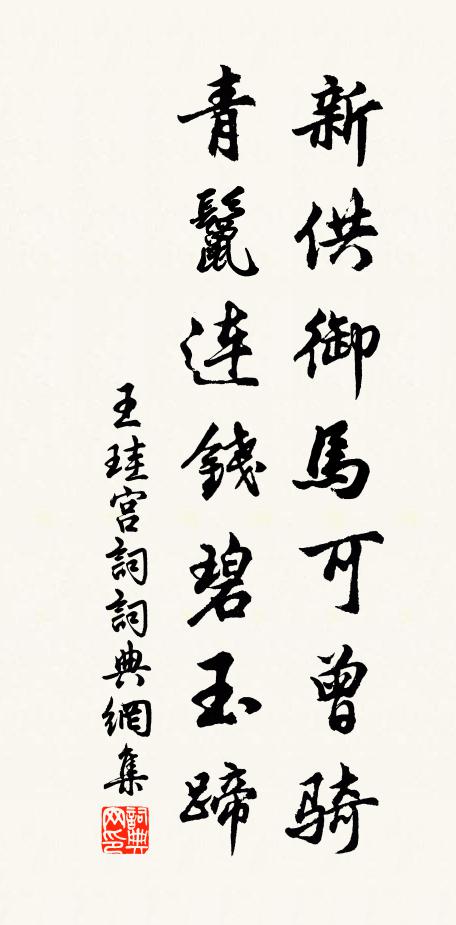 新供御馬可曾騎
青鬣連錢碧玉蹄
王珪宮詞詞典網集
詞典网印